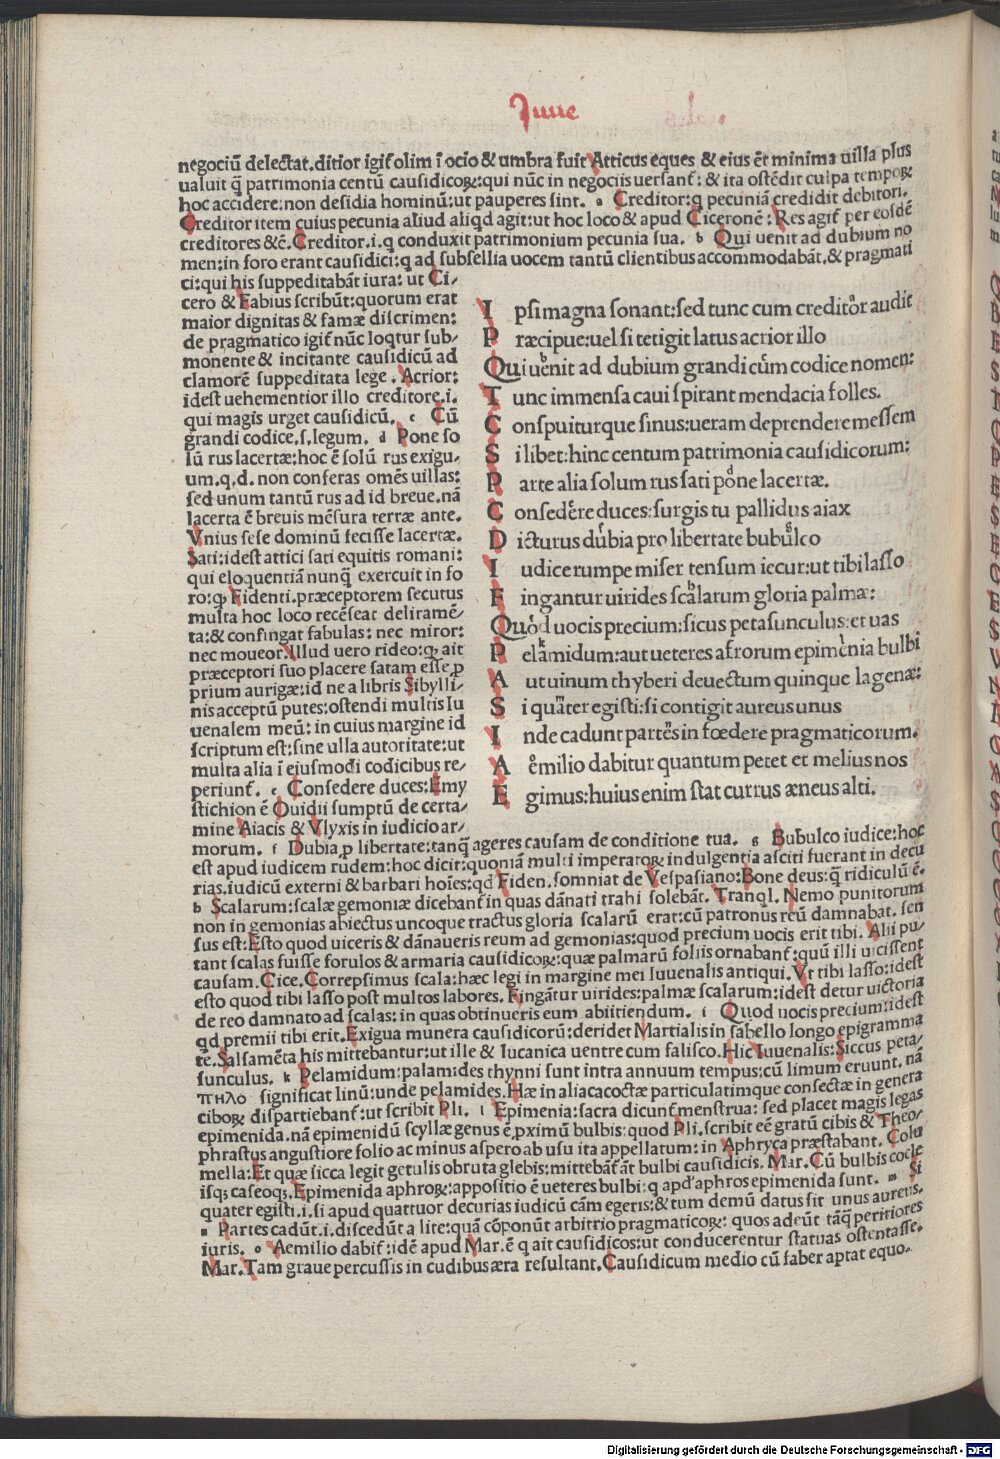 Iuue
negociū delectat.ditior igit̄ olim ī ocio & umbra fuit Atticus eques & eius ēt minima uilla plus
ualuit q̄ patrimonia centū causidicoꝝ:qui nūc in negociis uersant̄: & ita ostēdit culpa tempoꝝ
hoc accidere:non desidia hominū:ut pauperes sint. a Creditor:q pecuniā credidit debitori.
Creditor item cuius pecunia aliud aliqd agit:ut hoc loco & apud Ciceronē: Res agit̄ per eosdē
creditores &c̄. Creditor.i.q conduxit patrimonium pecunia sua. b Qui uenit ad dubium no
men:in foro erant causidici:q ad subsellia uocem tantū clientibus accommodabāt.& pragmati
ci:qui his suppeditabāt iura: ut Ci/
cero & Fabius scribūt:quorum erat
maior dignitas & famæ discrimen:
de pragmatico igit̄ nūc loqtur sub/
monente & incitante causidicū ad
clamorē suppeditata lege. Acrior:
idest uehementior illo creditore.i.
qui magis urget causidicū. c Cū
grandi codice.s.legum. d Pone so
lū rus lacertæ:hoc ē solū rus exigu/
um.q.d. non conferas omēs uillas:
sed unum tantū rus ad id breue.nā
lacerta ē breuis mēsura terræ ante.
Vnius sese dominū fecisse lacertæ.
Sati:idest attici sati equitis romani:
qui eloquentiā nunq̄ exercuit in fo
ro:ꝙ Fidenti.præceptorem secutus
multa hoc loco recēseat deliramē/
ta:& confingat fabulas: nec miror:
nec moueor.Illud uero rideo:ꝙ ait
præceptori suo placere satam esse ꝓ
prium aurigæ:id ne a libris Sibylli/
nis acceptū putes:ostendi multis Iu
uenalem meū: in cuius margine id
scriptum est:sine ulla autoritate:ut
multa alia ī eiusmodi codicibus re/
periunt̄. e Consedere duces:Emy
stichion ē Ouidii sumptū de certa/
mine Aiacis & Vlyxis in iudicio ar/
I psi magna sonant:sed tunc cum creditor audit
P ræcipue:uel si tetigit latus acrior illo
Qui uenit ad dubium grandi cum codice nomen:
T unc immensa caui spirant mendacia folles.
C onspuiturque sinus:ueram deprendere messem
S i libet:hinc centum patrimonia causidicorum:
P arte alia solum rus sati pone lacertæ.
C onsedere duces:surgis tu pallidus aiax
D icturus dubia pro libertate bubulco
I udice rumpe miser tensum iecur:ut tibi lasso
F ingantur uirides scalarum gloria palmæ:
Quod uocis precium:siccus petasunculus:et uas
P elamidum:aut ueteres afrorum epimenia bulbi
A ut uinum thyberi deuectum quinque lagenæ:
S i quater egisti:si contigit aureus unus
I nde cadunt partes in fœdere pragmaticorum.
A emilio dabitur quantum petet et melius nos
E gimus:huius enim stat currus æneus alti.
morum. f Dubia ꝓ libertate:tanq̄ ageres causam de conditione tua. g Bubulco iudice:hoc
est apud iudicem rudem:hoc dicit:quoniā multi imperatoꝝ indulgentia asciti fuerant in decu
rias.iudicū externi & barbari hoīes:qd Fiden.somniat de Vespasiano:Bone deus:q̄ ridiculū ē.
h Scalarum:scalæ gemoniæ dicebant̄ in quas dānati trahi solebāt. Tranql. Nemo punitorum
non in gemonias abiectus uncoque tractus gloria scalarū erat:cū patronus reū damnabat. sen
sus est:Esto quod uiceris & dānaueris reum ad gemonias:quod precium uocis erit tibi. Alii pu/
tant scalas fuisse forulos & armaria causidicoꝝ:quæ palmarū foliis ornabant̄:quū illi uicissent
causam. Cice.Correpsimus scala:hæc legi in margine mei Iuuenalis antiqui.Vt tibi lasso:idest
esto quod tibi lasso post multos labores. Fingātur uirides:palmæ scalarum:idest detur uictoria
de reo damnato ad scalas: in quas obtinueris eum abiitiendum. i Quod uocis precium:idest
qd premii tibi erit.Exigua munera causidicorū:deridet Martialis in sabello longo epigramma
te.Salsamēta his mittebantur:ut ille & lucanica uentre cum falisco.Hic Iuuenalis:Siccus peta/
sunculus. k Pelamidum:palamides thynni sunt intra annuum tempus:cū limum eruunt. nā
πηλο significat linū:unde pelamides.Hæ in aliacacoctæ particulatimque consectæ in genera
ciboꝝ dispartiebant̄:ut scribit Pli. l Epimenia:sacra dicunt̄ menstrua: sed placet magis legas
epimenida.nā epimenidū scyllæ genus ē ꝓximū bulbis:quod Pli.scribit eē gratū cibis & Theo/
phrastus angustiore folio ac minus aspero ab usu ita appellatum: in Aphryca præstabant. Colu
mella:Et quæ sicca legit getulis obruta glebis:mittebāt̄ āt bulbi causidicis. Mar.Cū bulbis cocle
isq; caseoq;.Epimenida aphroꝝ:appositio ē ueteres bulbi:q apd' aphros epimenida sunt. m Si
quater egisti.i.si apud quattuor decurias iudicū cām egeris:& tum demū datus sit unus aureus.
n Partes cadūt.i.discedūt a lite:quā cōponūt arbitrio pragmaticoꝝ: quos adeūt tāq̄ peritiores
iuris. o Aemilio dabit̄:idē apud Mar.ē q ait causidicos:ut conducerentur statuas ostentasse.
Mar.Tam graue percussis in cudibus æra resultant.Causidicum medio cū faber aptat equo.
Digitalisierung gefördert durch die Deutsche Forschungsgemeinschaft - DFG